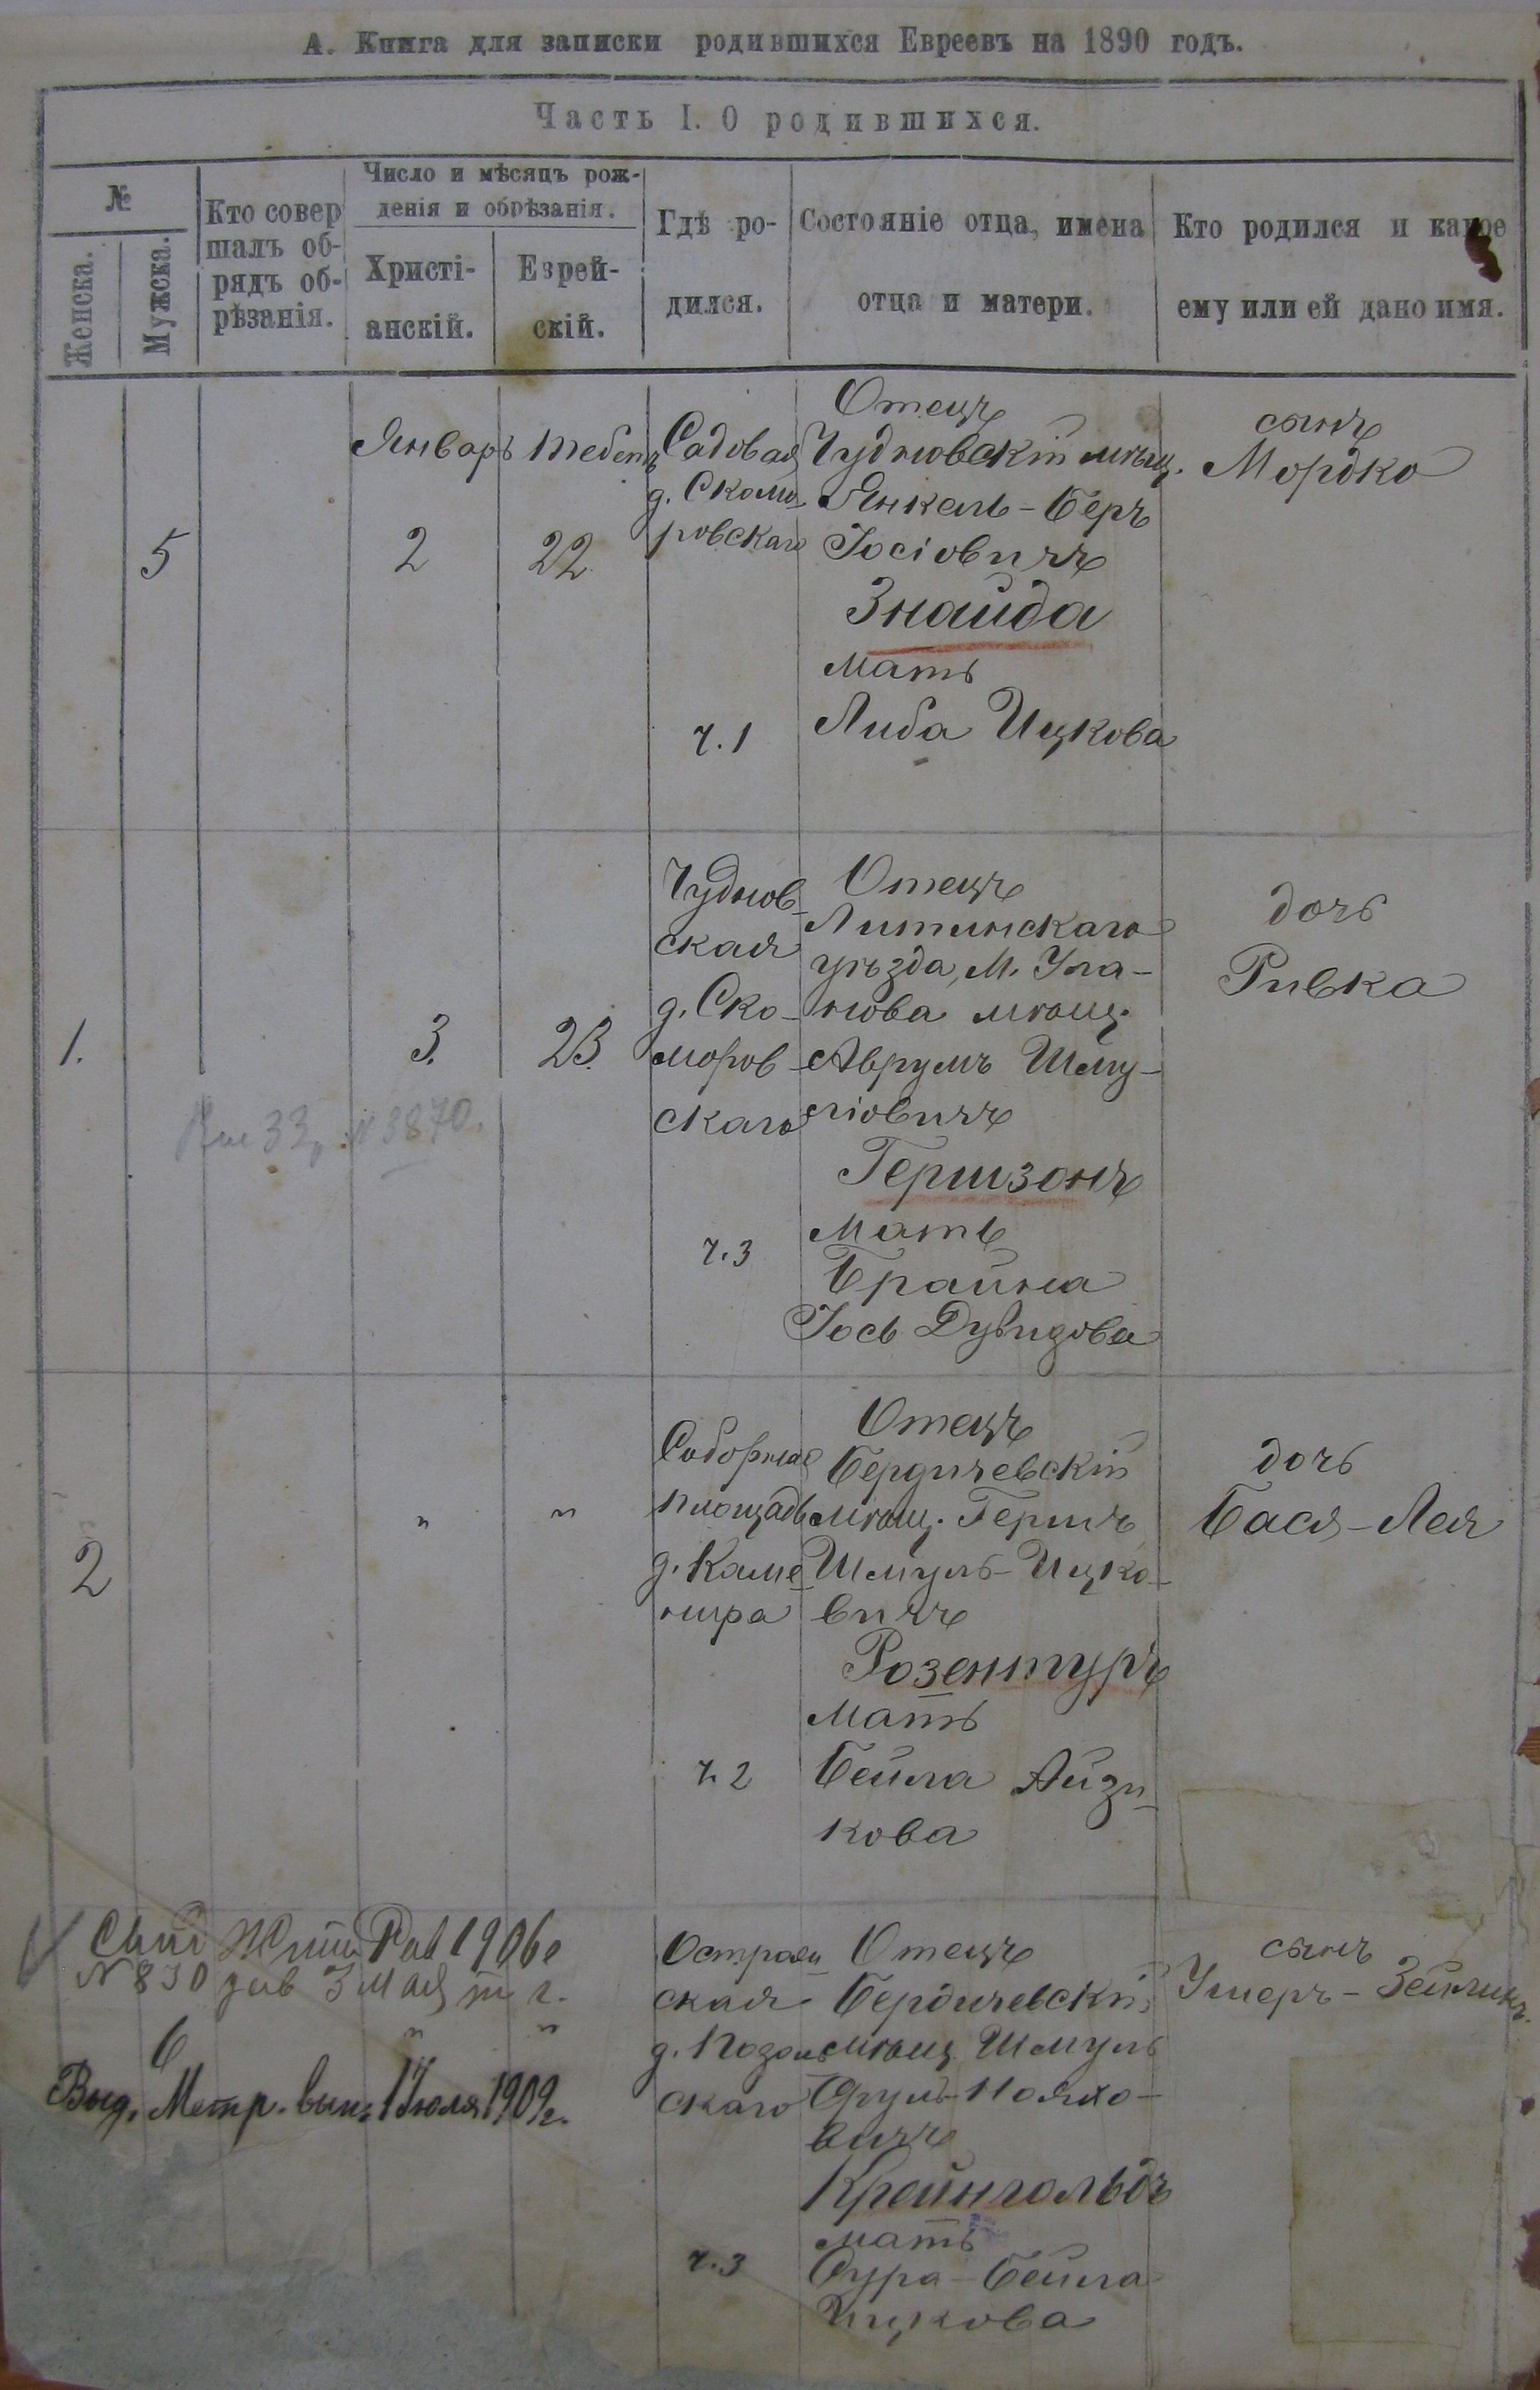 А. Книга для записки родившихся Евреевъ на 1890 годъ.
Часть I. О родившихся.
№
Женска.
Мужска.
Кто совер
шалъ об-
рядъ об-
рѣзанія.
Число и мѣсяцъ рож-
денія и обрѣзанія.
Христі-
анскій.
Еврей-
скій.
Гдѣ ро-
дился.
Состояніе отца, имена
отца и матери.
Кто родился и какое
ему или ей дано имя.
5
Январь
2
Тебетъ
22
Садовая
д. Скомо-
ровскаго
ч. 1
Отецъ
Чудновскій мѣщ.
Янкель-Беръ
Іосіовичъ
Знайда
Мать
Либа Ицкова
сынъ
Мордко
1.
3.
23.
№ 3870.
Чуднов-
ская
д. Ско-
моров-
скаго
ч. 3
Отецъ
Литинскаго
уѣзда, М. Ула-
нова мѣщ.
Аврумъ Шму-
ліовичъ
Гершзонъ
Мать
Брайна
Іось Дувидова
дочь
Ривка
2
"
"
Соборная
площадь
д. Каме-
нира
ч. 2
Отецъ
Бердичевскій
мѣщ. Гершъ
Шмуль-Ицко-
вичъ
Розентуръ
Мать
Бейла Айзи-
кова
дочь
Бася-Лея
Рав 1906 г
№ 830 3 мая т г.
6
"
"
Выд. Метр. вып. 1 Іюля 1909 г.
ская
скаго
ч. 3
Отецъ
Бердичевскій
мѣщ Шмуль
вичъ
Крейнгольдъ
мать
Сура-Бейла
Ицкова
сынъ
Ушеръ-Зейликъ.